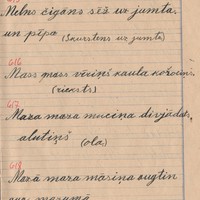 Melns čigāns sēž uz jumta
un pīpo (Skurstens uz jumta)
616
Mass mass vēriņš kaula kožociņš
(rieksts)
617
Maza maza muciņa divjādas
alutiņš (ola)
618
Mazā maza māsiņa augtin